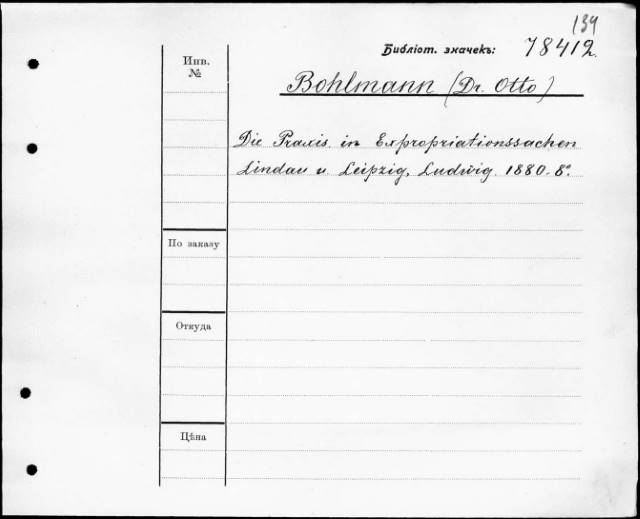 134
Библіот. значекъ: 78412.
Инв.
№
Bohlmann (Dr. Otto)
Die Praxis in Expropriationssachen
Lindau u. Leipzig, Ludwig. 1880. 8º.
По заказу
Откуда
Цѣна